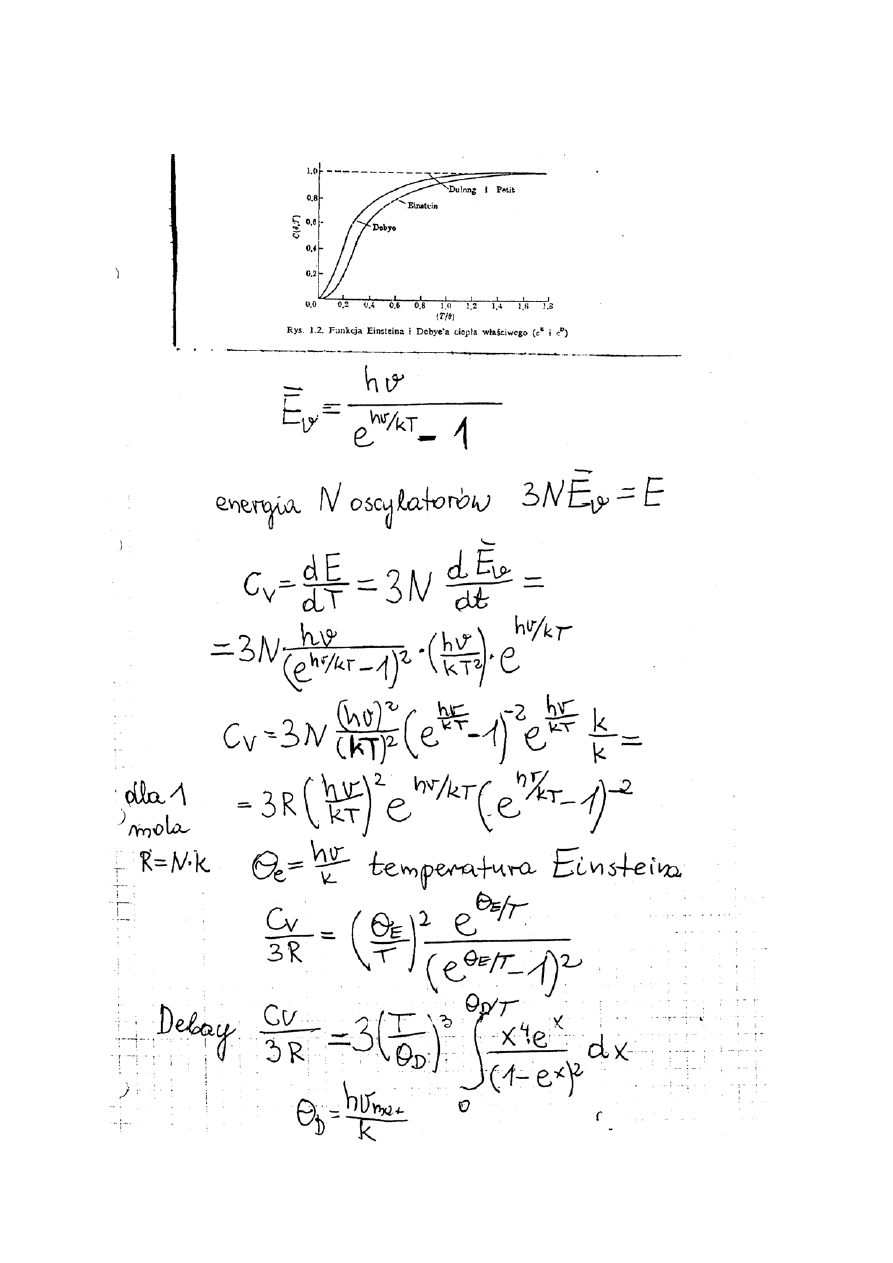 1,0
Dulong i Petit
0,8
Einstein
C(θ,T)
0,6
Debye
0,4
0,2
0,0 0,2 0,4 0,6 0,8 1,0 1,2 1,4 1,6 1,8
(T/θ)
Rys. 1.2. Funkcja Einsteina i Debye'a ciepła właściwego (cᴱ i cᴰ)
Ē_ν = hν / (e^{hν/kT} - 1)
energia N oscylatorów 3NĒ_ν = E
C_V = dE/dT = 3N dĒ_ν/dt =
= 3N · hν/(e^{hν/kT} - 1)² · (hν/kT²) · e^{hν/kT}
C_V = 3N (hν)²/(kT)² (e^{hν/kT} - 1)^{-2} e^{hν/kT} k/k =
dla 1 mola
= 3R (hν/kT)² e^{hν/kT} (e^{hν/kT} - 1)^{-2}
R = N·k
Θ_e = hν/k temperatura Einsteina
C_V/3R = (Θ_E/T)² e^{Θ_E/T} / (e^{Θ_E/T} - 1)²
Debay C_V/3R = 3(T/Θ_D)³ ∫₀^{Θ_D/T} x⁴e^x/(1 - e^x)² dx
Θ_D = hν_max/k